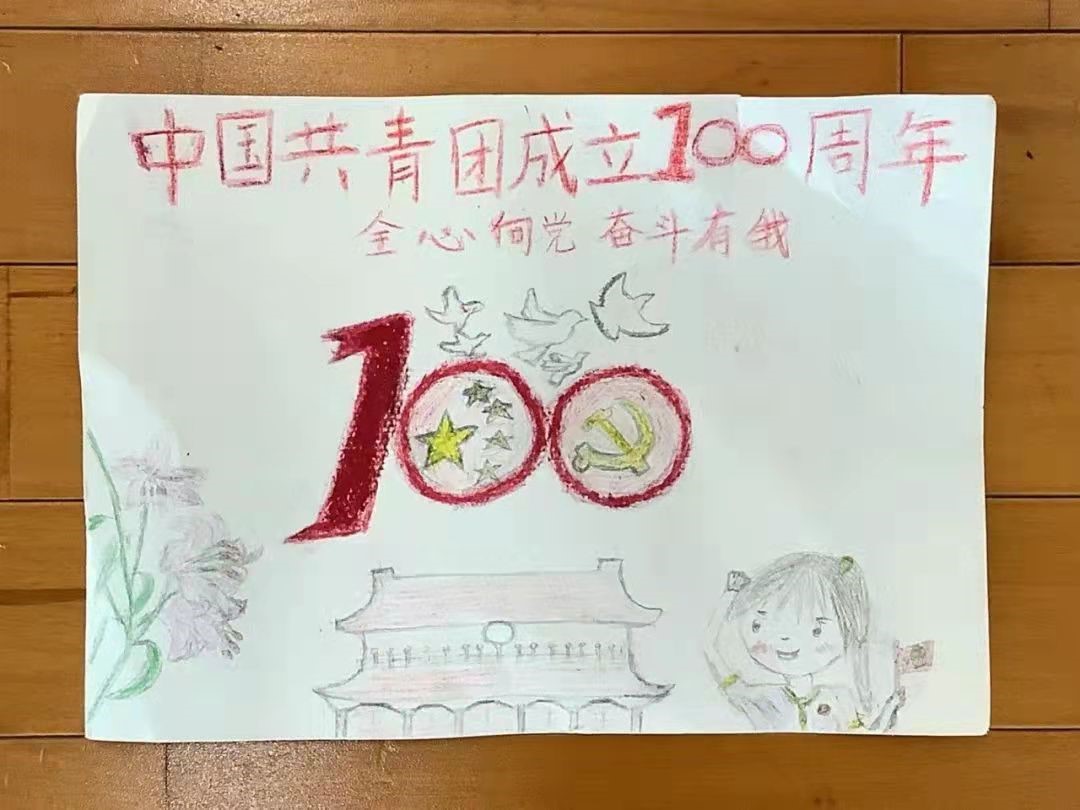 中国共青团成立100周年
全心向党 奋斗有我
100